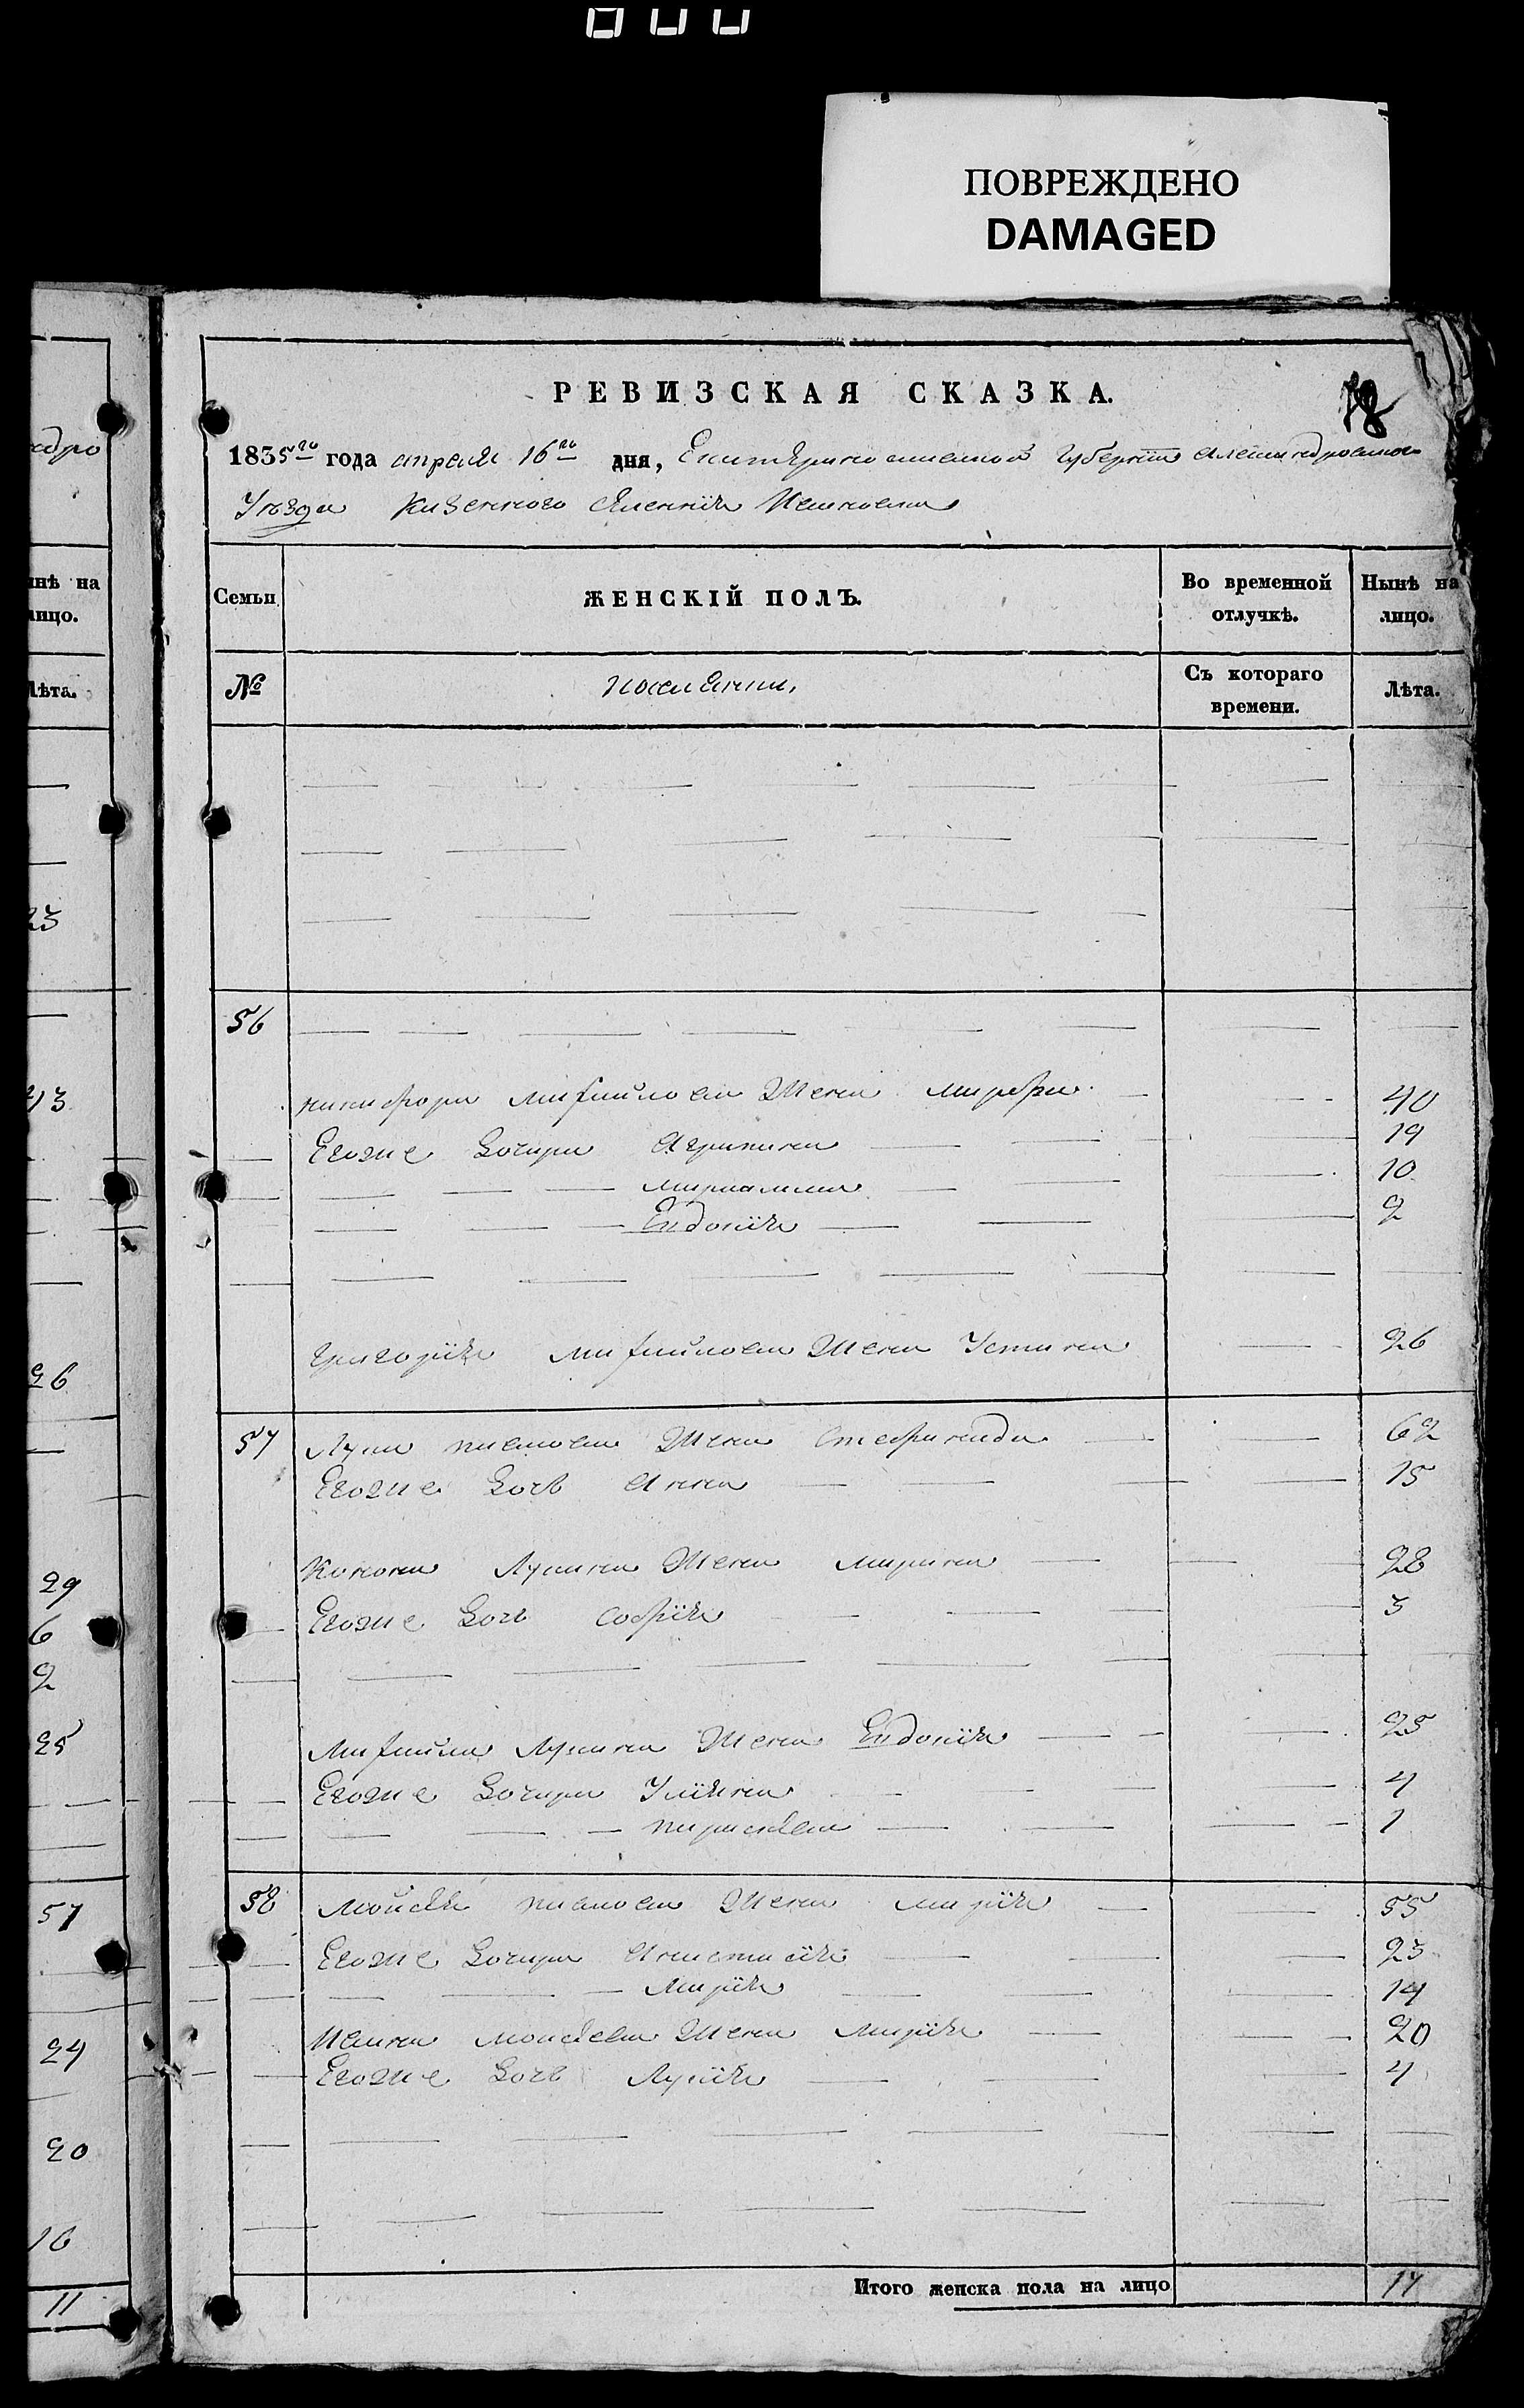 ПОВРЕЖДЕНО
DAMAGED
РЕВИЗСКАЯ СКАЗКА.
78
1835го года апреля 16го дня, Екатеринославской Губернiи Александровского
Уѣзда Казенного Селенiя Ивановки
Семьи ЖЕНСКIЙ ПОЛЪ. Во временной отлучкѣ. Нынѣ на лицо.
№ поселянки, Съ котораго времени. Лѣта.
56
никифора михайлова Жена марфа 40
Егоже Дочери Агрипина 19
10
Евдокiя 2
григорiя михайлова Жена Устина 26
57 Луки павлова Жена Стефанида 62
Егоже Дочь Анна 15
Конона Лукина Жена марина 28
Егоже Дочь Софiя 3
Михайла Лукина Жена Евдокiя 25
Егоже Дочери Улiяна 4
параскева 1
58 Мойсея павлова Жена марiя 55
Егоже Дочери Анастасiя 23
Марiя 14
Ивана мойсеева Жена Марiя 20
Егоже Дочь Лукiя 4
Итого женска пола на лицо 17
ндро
нѣ на
лицо.
Лѣта.
23
43
26
29
6
2
25
57
24
20
16
11